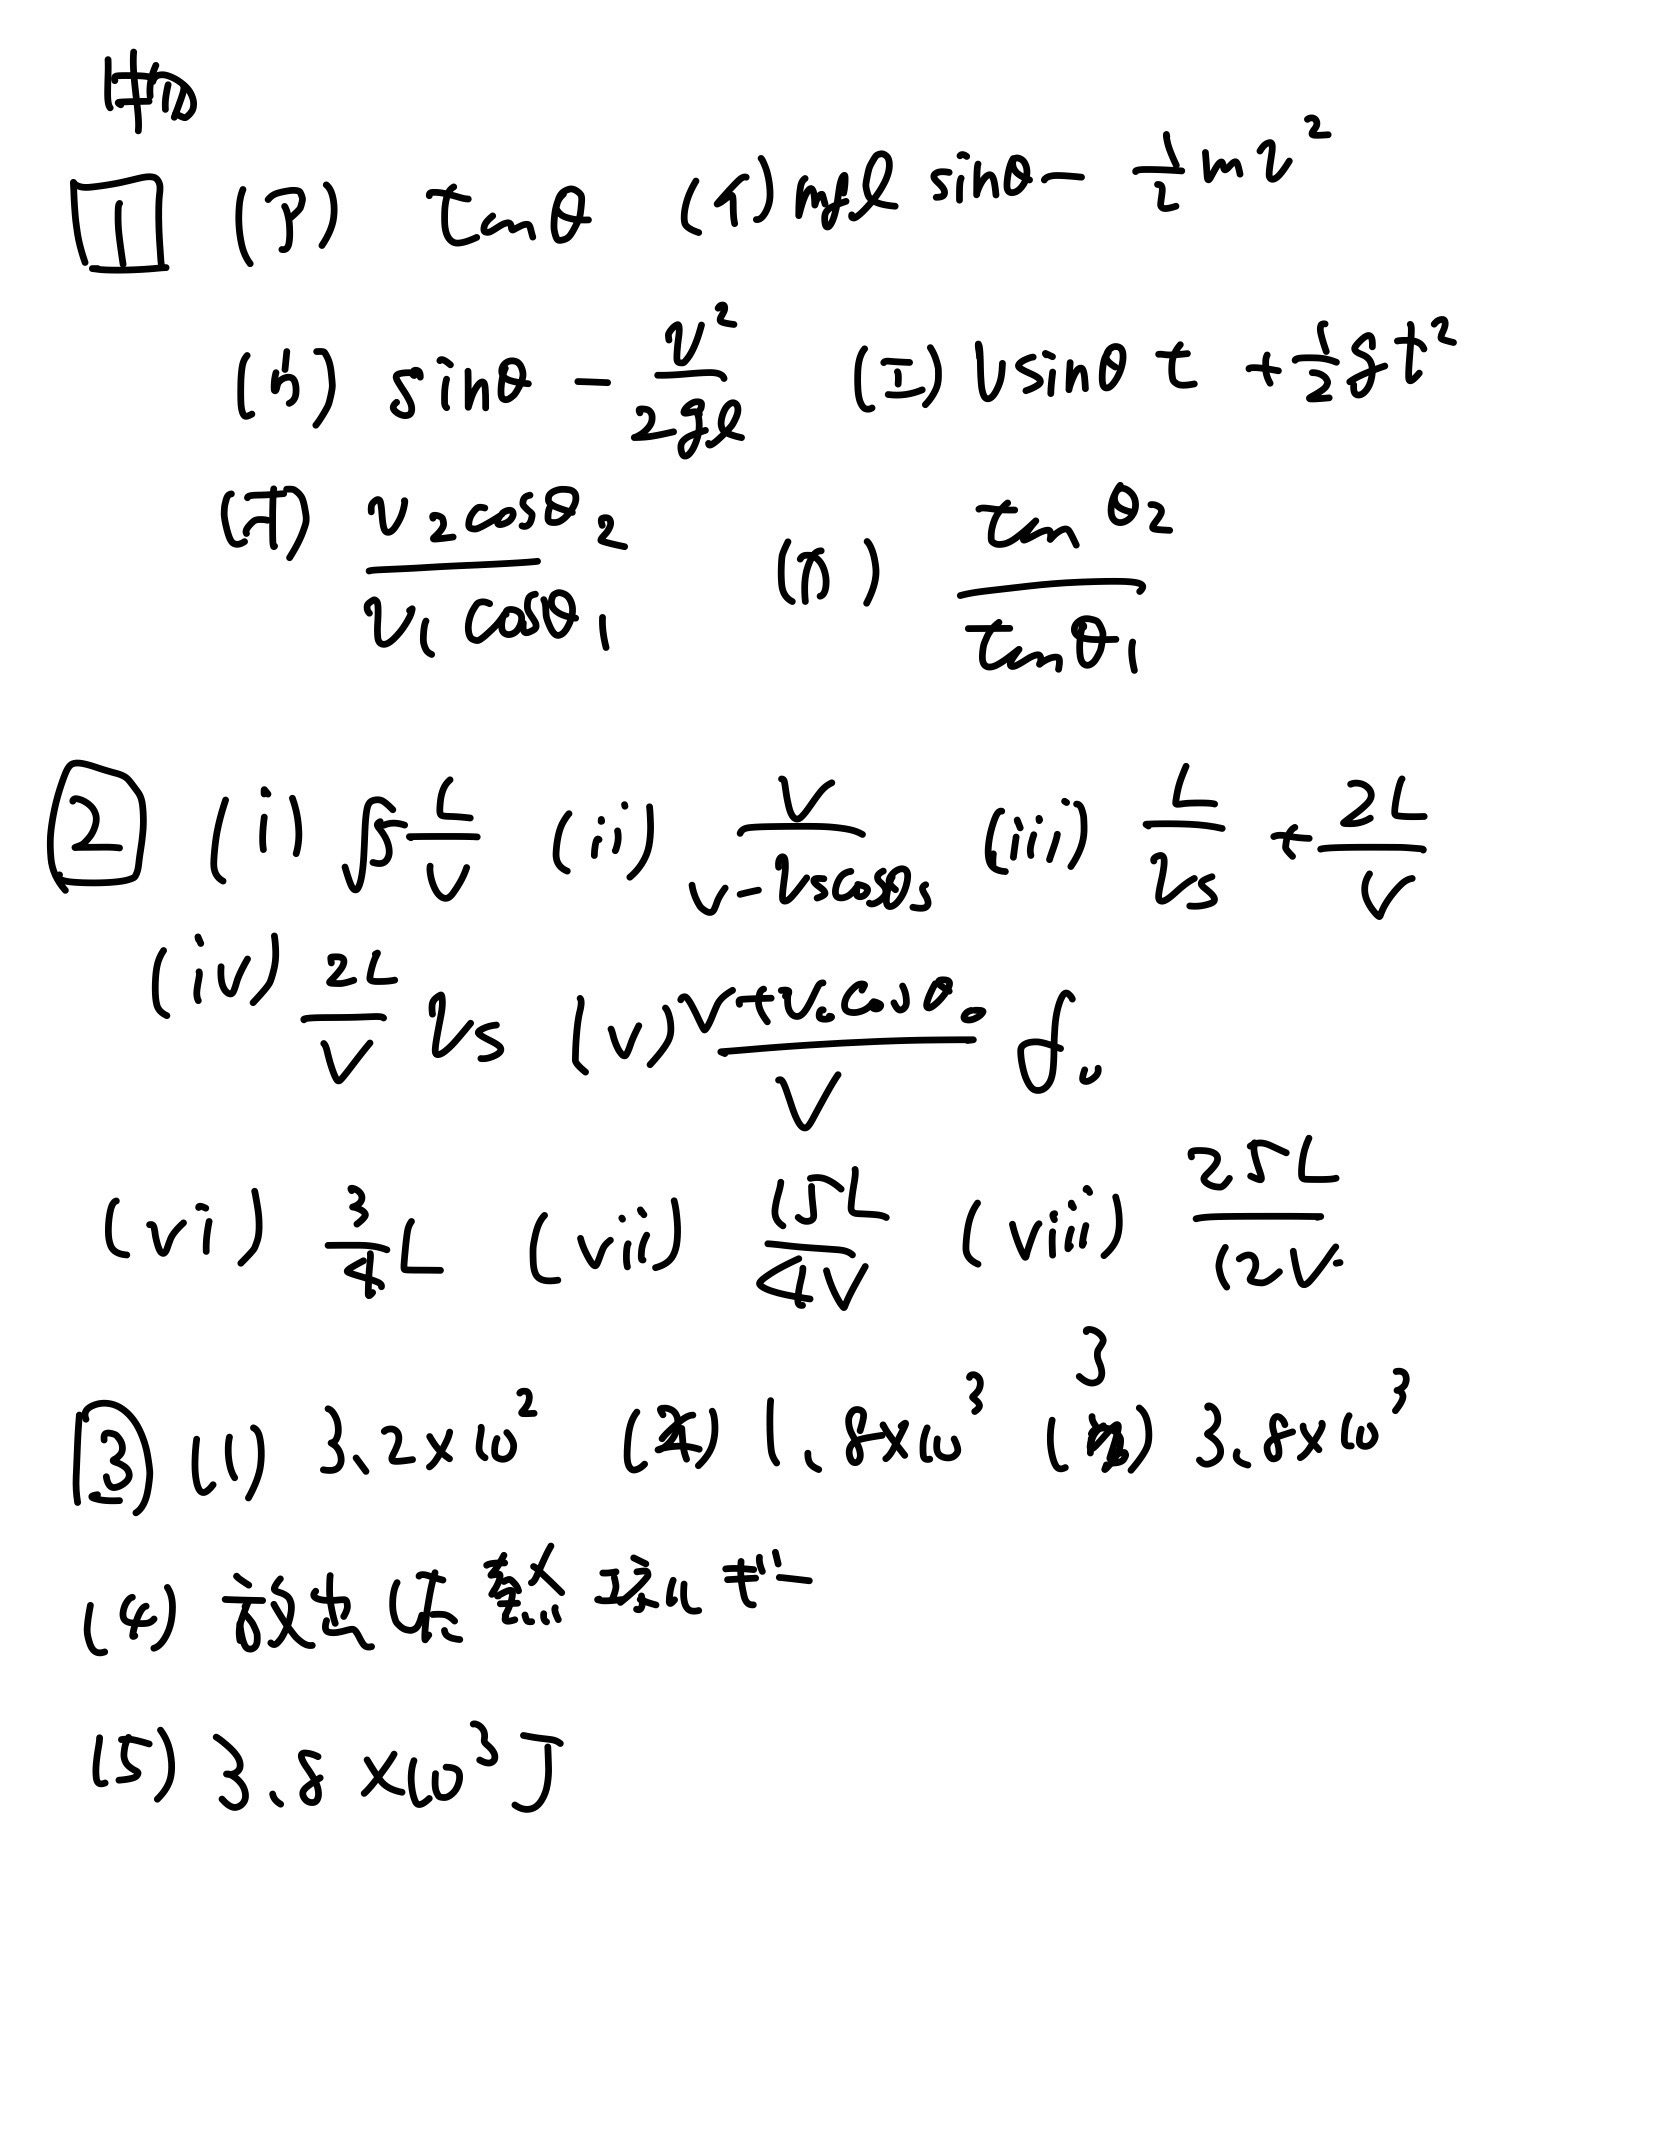 1 (ア) tanθ (イ) mgl sinθ - 1/2 mv²
(カ) sinθ - v²/2gl (エ) V sinθ t + 1/2 gt²
(オ) v₂cosθ₂/v₁cosθ₁ (カ) tanθ₂/tanθ₁
2 (i) √5 L/V (ii) V/(V-vscosθs) (iii) L/vs + 2L/V
(iv) 2L/V vs (v) (V+v₀cosθ₀)/V f₀
(vi) 3/4 L (vii) 15L/4V (viii) 25L/12V
3 (1) 3.2×10² (2) 1.8×10³ (3) 3.8×10³
(4) 放出した熱エネルギー
(5) 3.8×10³J